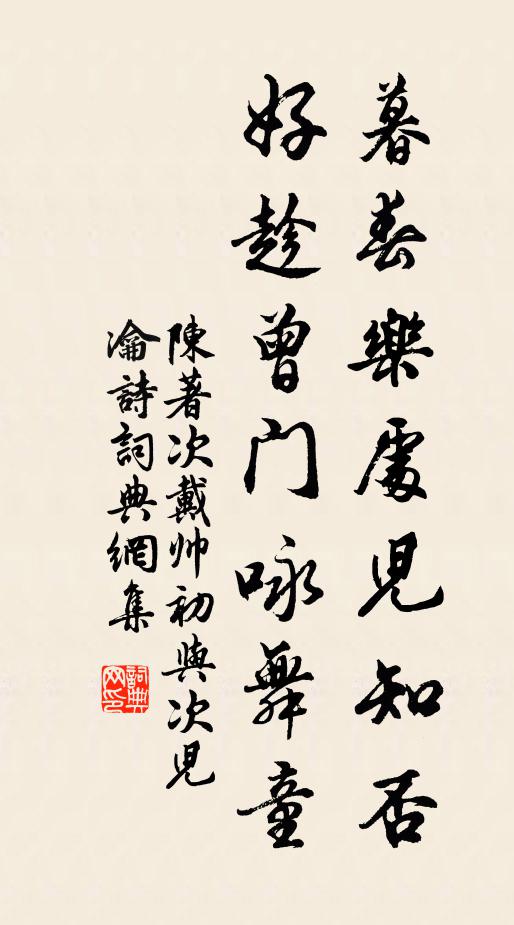 暮春樂處児知否
好趁曾門咏舞童
陳著次戴帅初與次児
瀹詩詞典網集
詞典网印